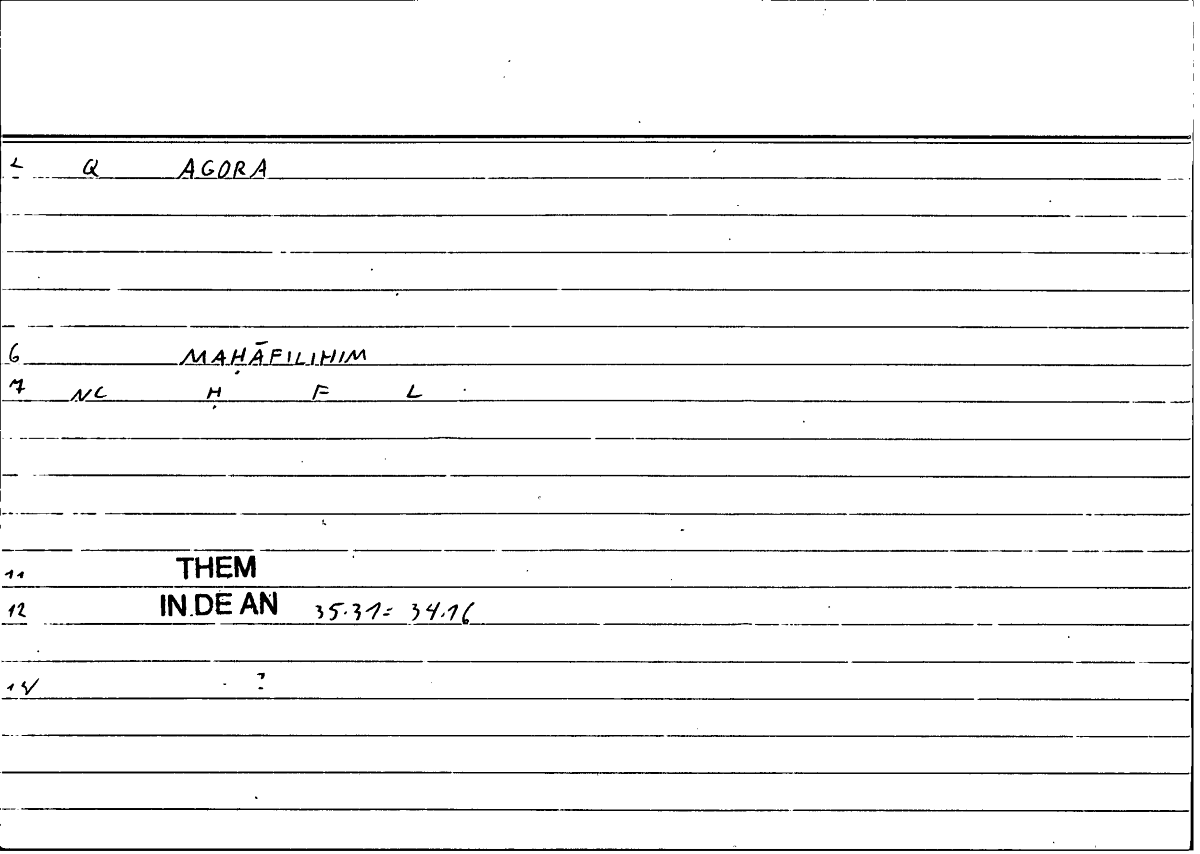 1 Q AGORA
6 MAḤĀFILIHIM
7 NC Ḥ F L
11 THEM
12 IN.DE AN 35.31= 34.16
14 ?